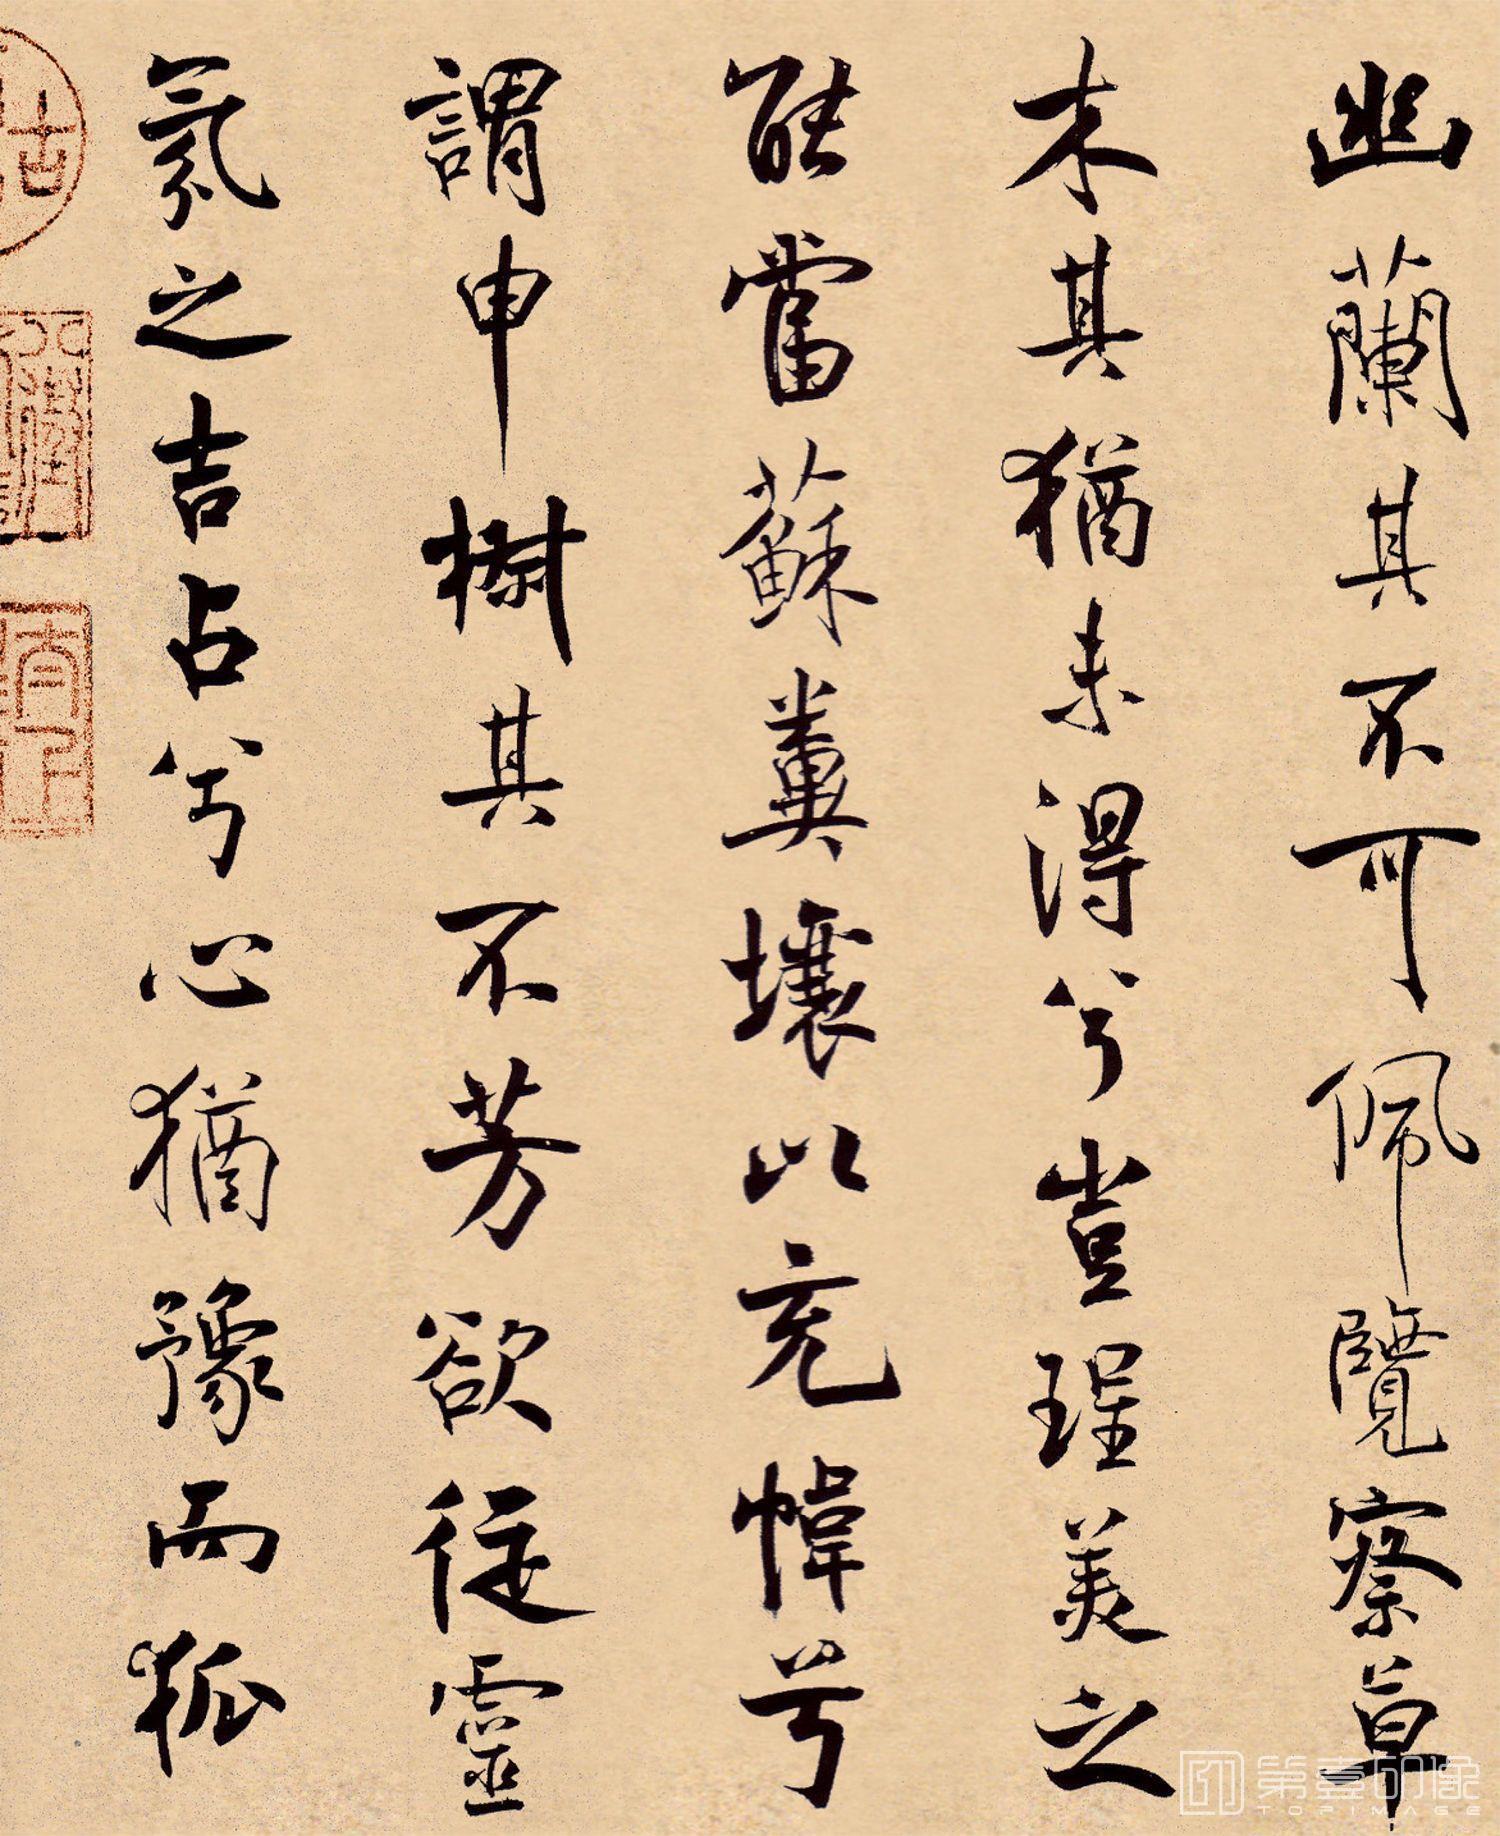 幽蘭其不可佩覽察草
木其猶未得兮豈珵美之
能當蘇糞壤以充幃兮
謂申椒其不芳欲從靈
氛之吉占兮心猶豫而狐
第壹印像
TOPIMAGE